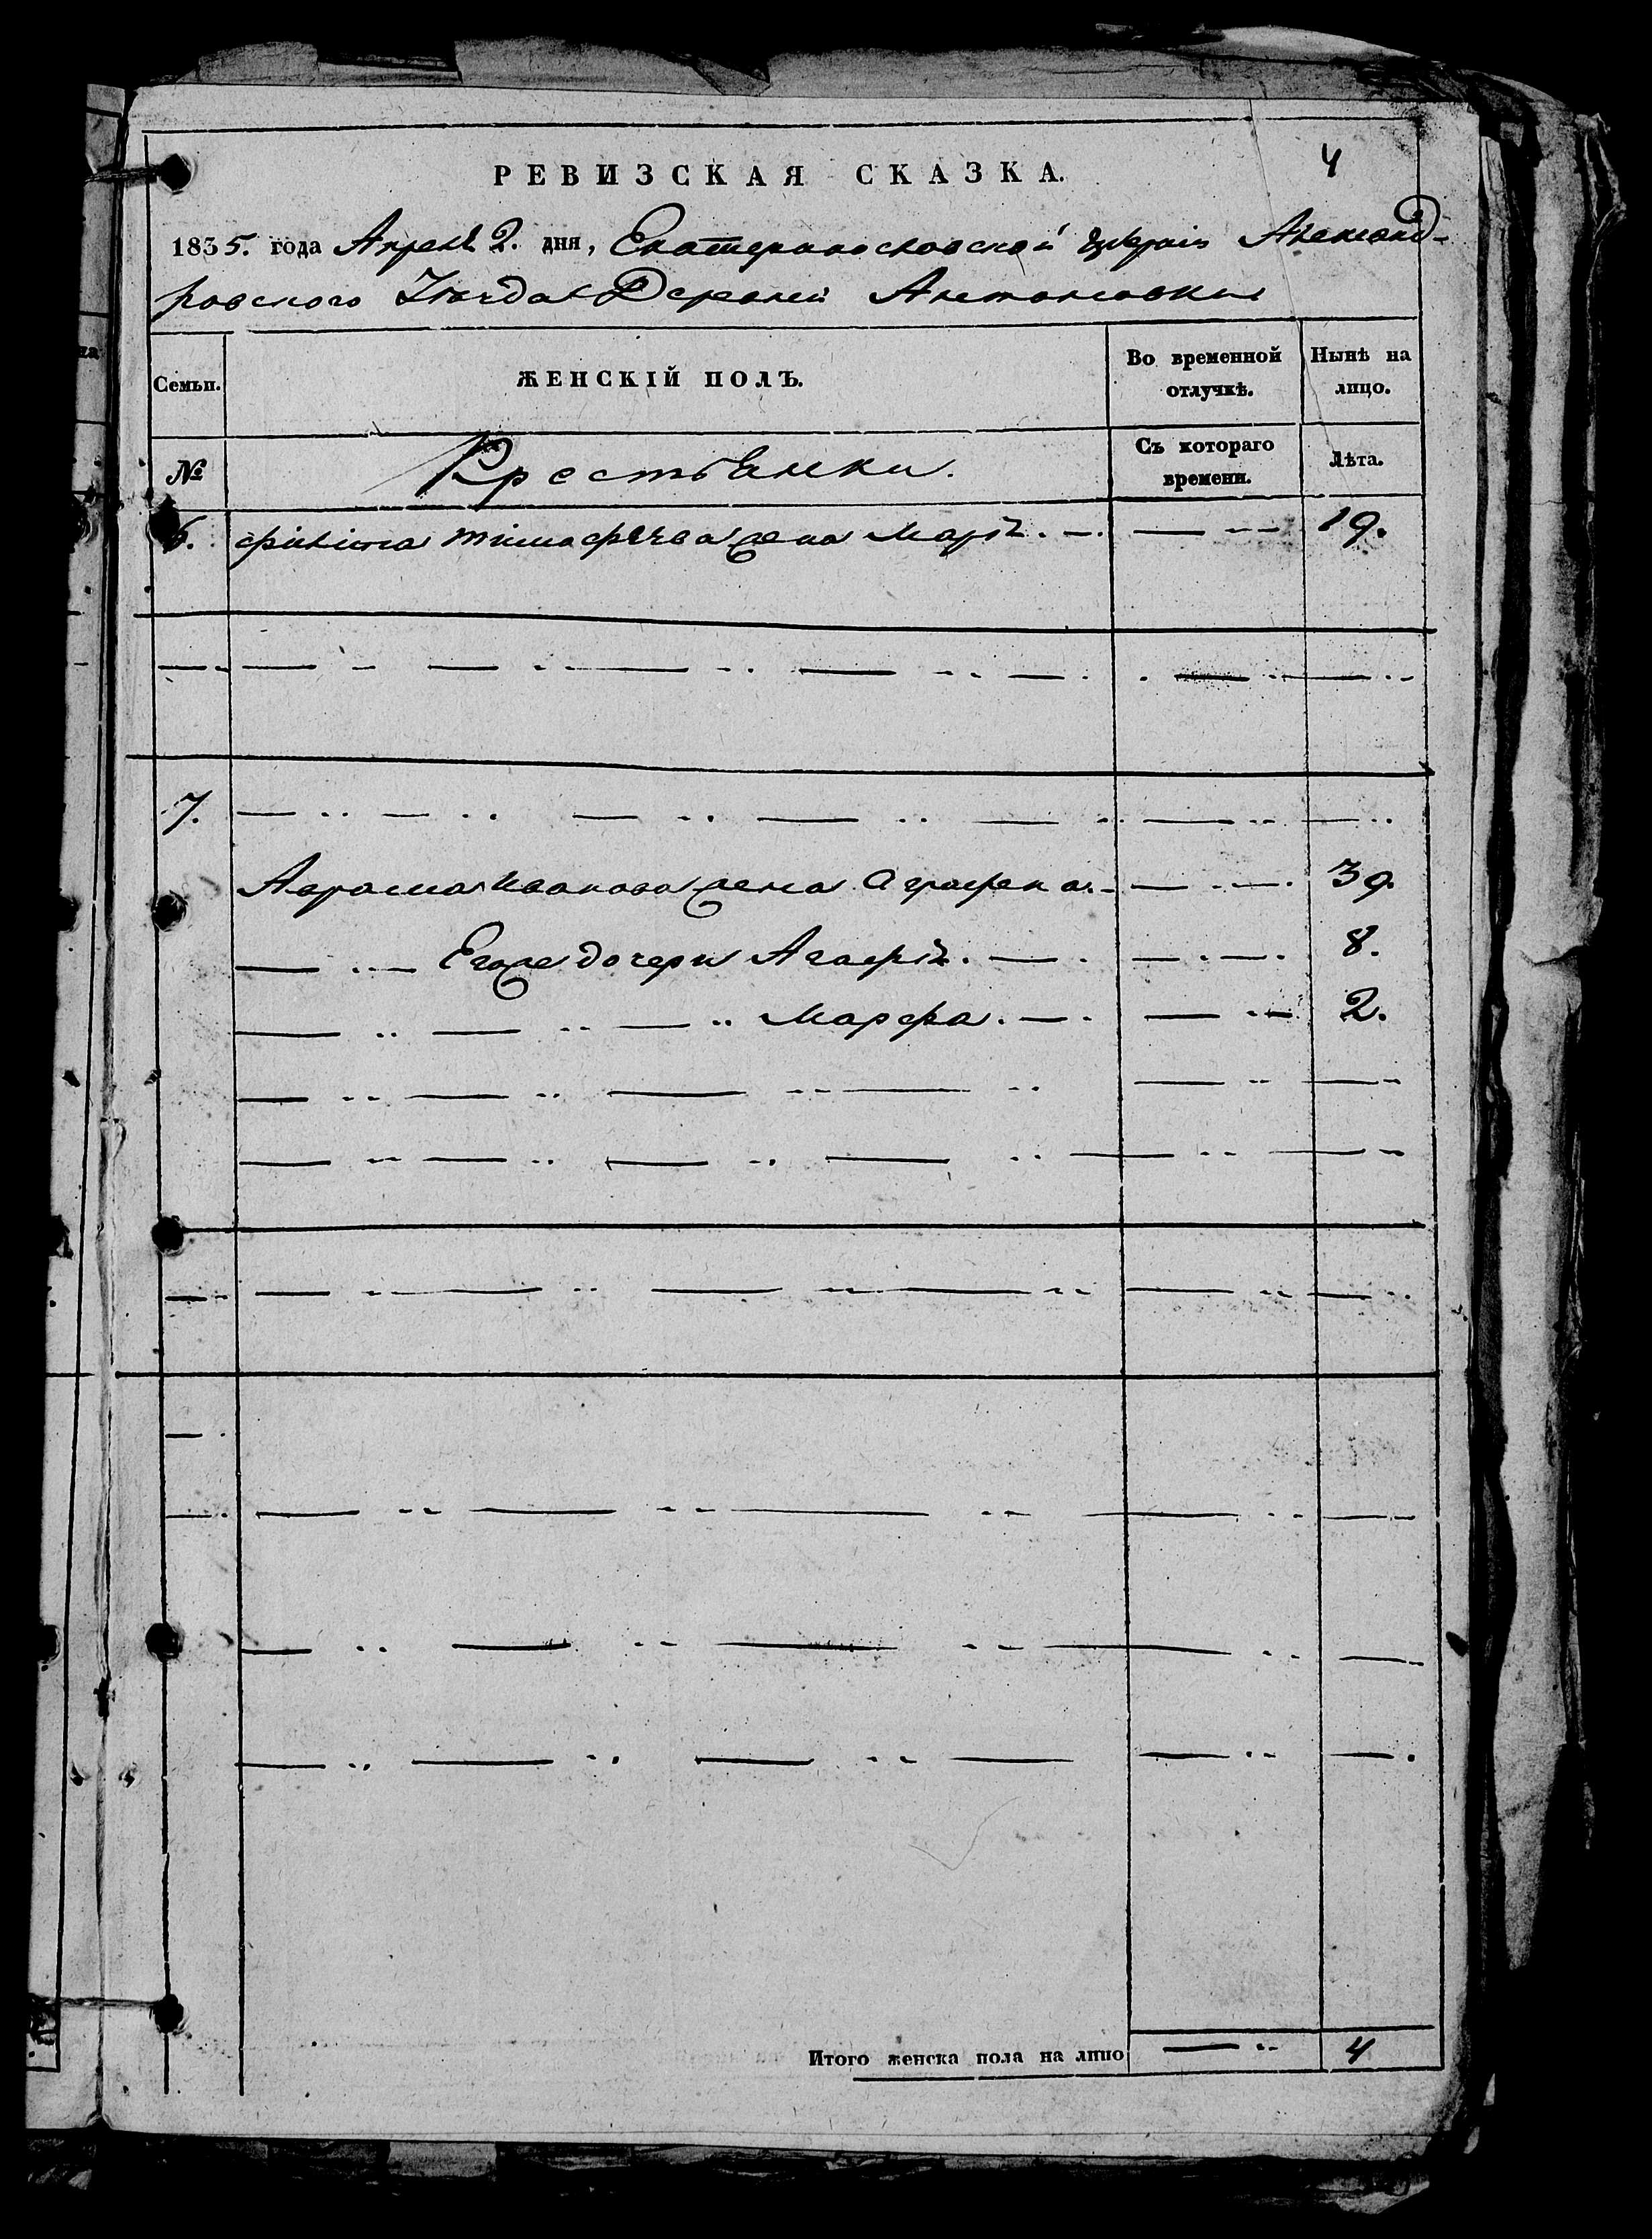 4
РЕВИЗСКАЯ СКАЗКА.
1835. года Апреля 2. дня, Екатеринославской губернiи Александ-
ровского Уезда Деревни Антоновки
Семьи. ЖЕНСКІЙ ПОЛЪ. Во временной отлучкѣ. Нынѣ на лицо.
№ Крестьянки. Съ котораго времени. Лѣта.
6. филипа тимофеева жена Марія. — — 19.
7. — — — — —
Аврама иванова жена Аграфена. — — 39.
— Егоже дочери Агафія. — — 8.
— — — Марфа. — — 2.
Итого женска пола на лицо — 4